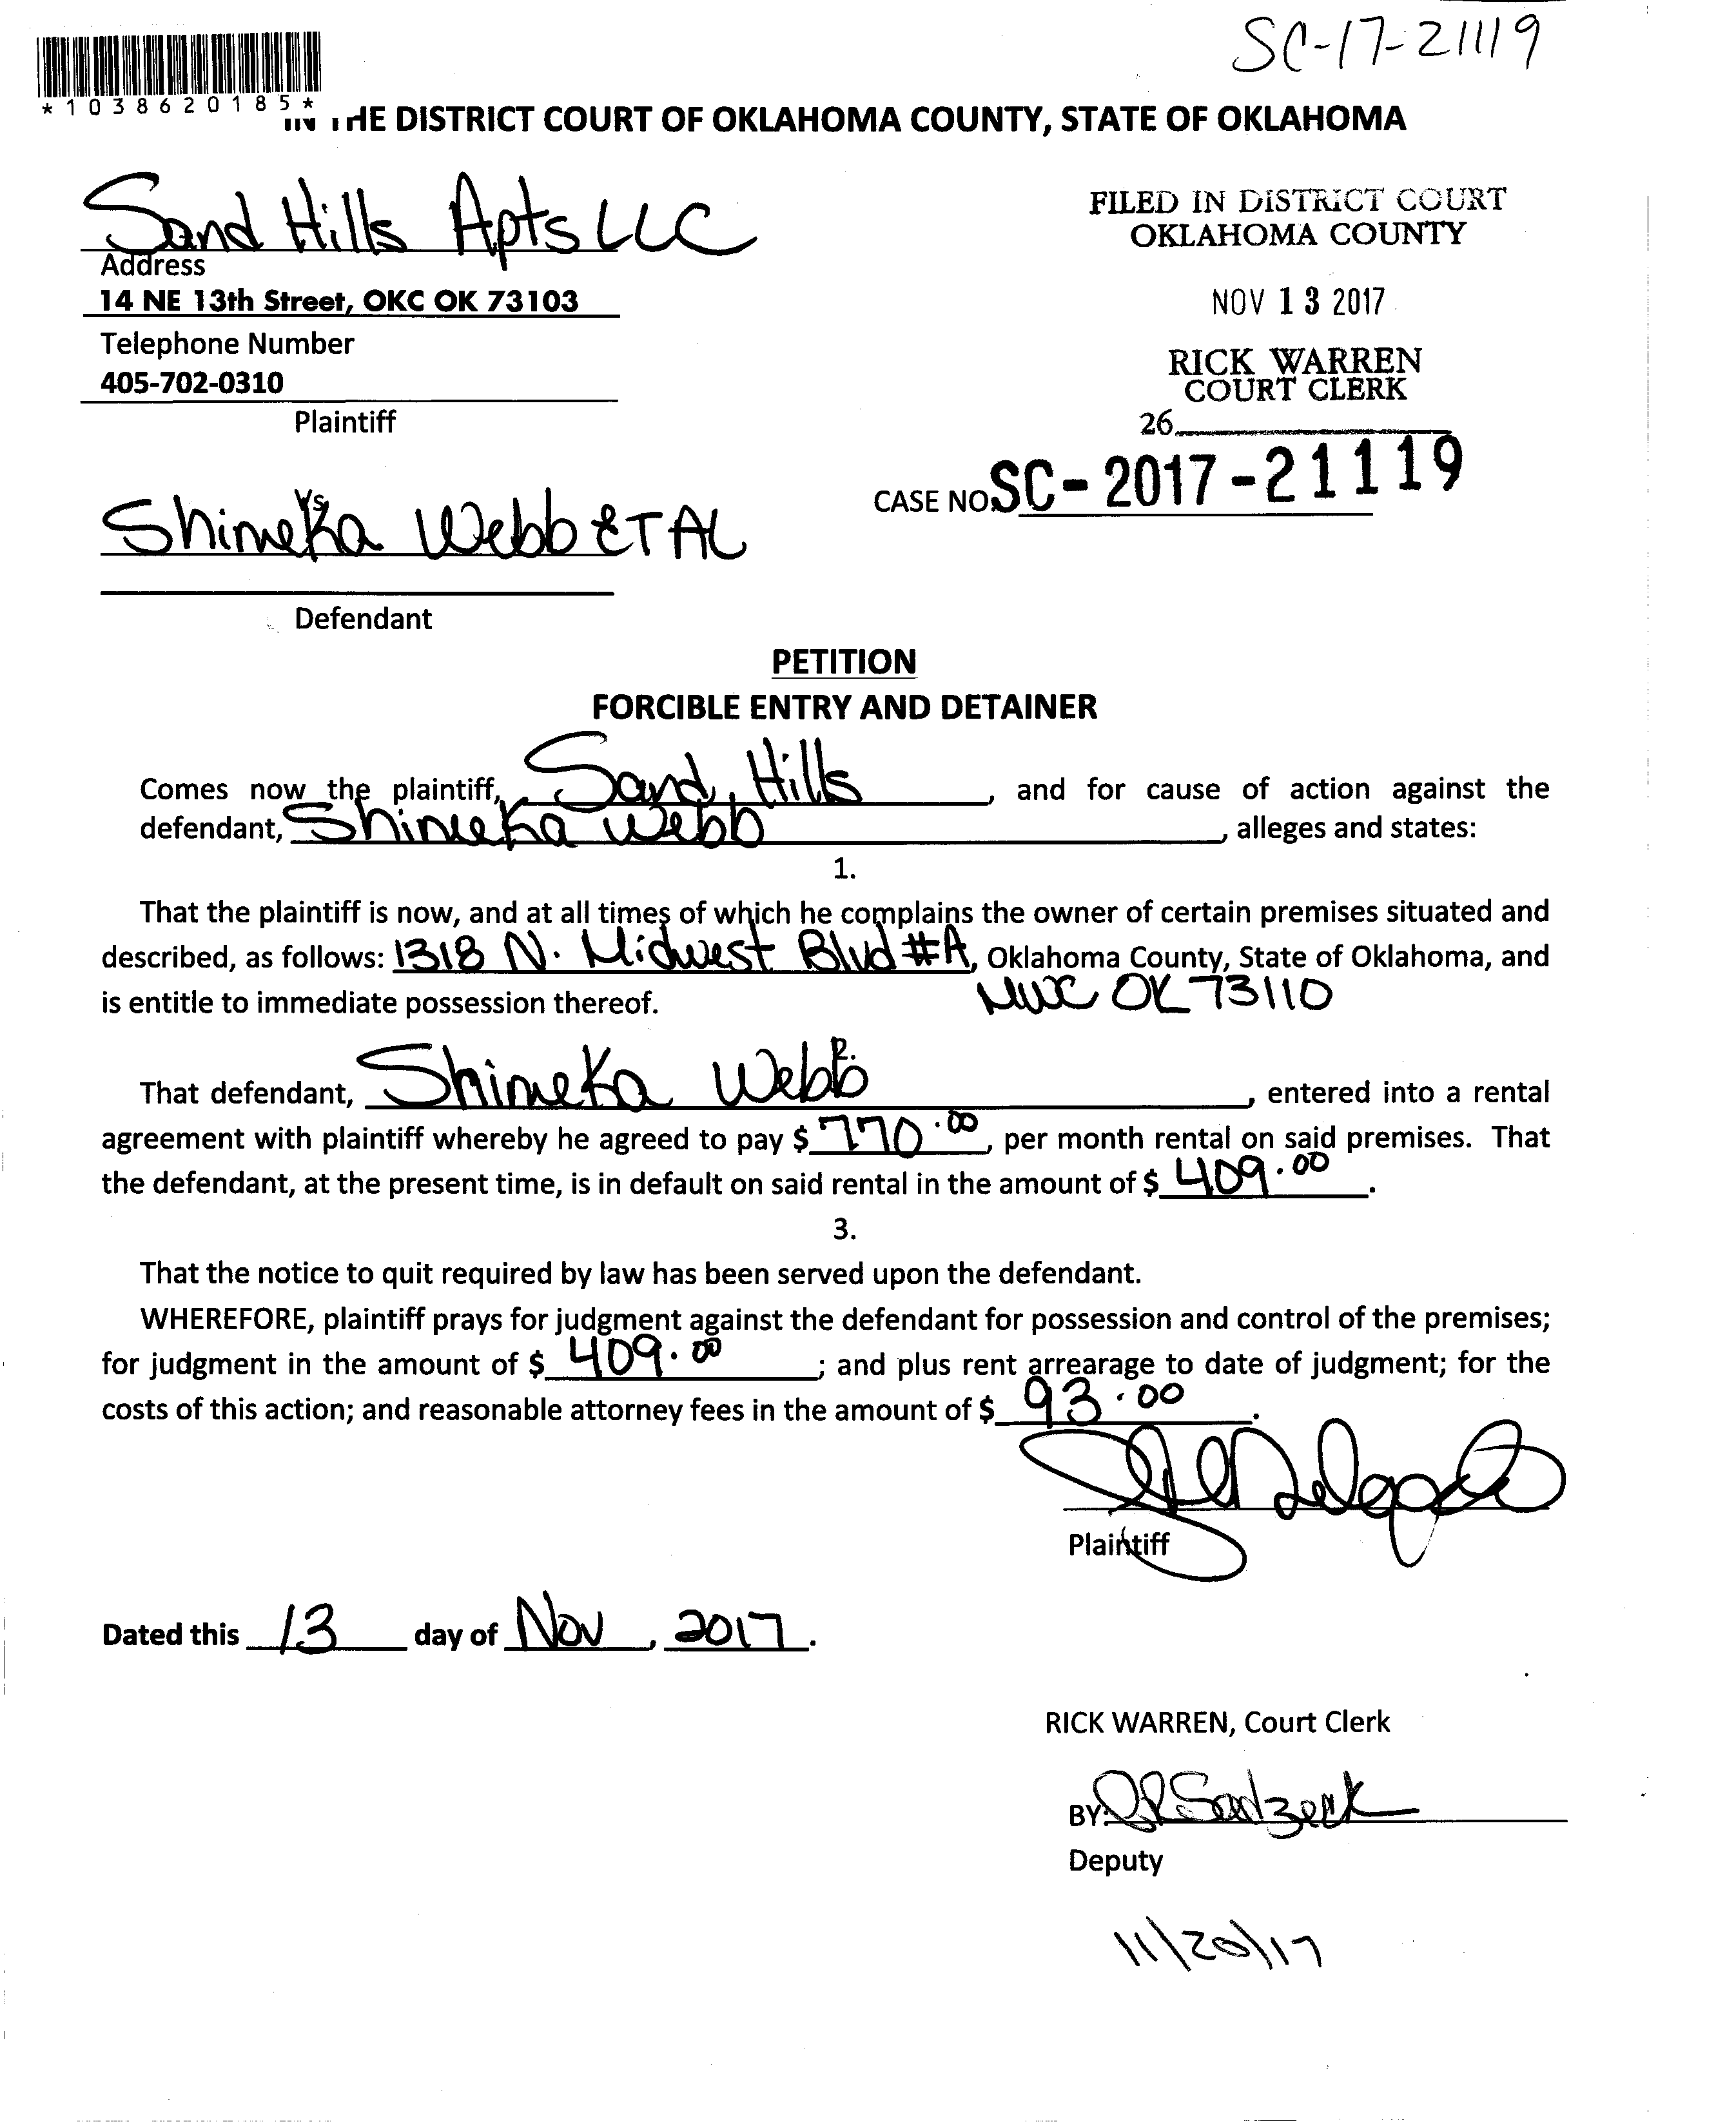 SC-17-21119
*1038620185*
IN THE DISTRICT COURT OF OKLAHOMA COUNTY, STATE OF OKLAHOMA
Sand Hills Apts LLC
Address
14 NE 13th Street, OKC OK 73103
Telephone Number
405-702-0310
Plaintiff
FILED IN DISTRICT COURT
OKLAHOMA COUNTY
NOV 13 2017
RICK WARREN
COURT CLERK
26
CASE NO. SC-2017-21119
Vs.
Shimeka Webb ET AL
Defendant
PETITION
FORCIBLE ENTRY AND DETAINER
Comes now the plaintiff, Sand Hills, and for cause of action against the
defendant, Shimeka Webb, alleges and states:
1.
That the plaintiff is now, and at all times of which he complains the owner of certain premises situated and
described, as follows: 1318 N. Midwest Blvd #A, Oklahoma County, State of Oklahoma, and
is entitle to immediate possession thereof. MWC OK 73110
2.
That defendant, Shimeka Webb, entered into a rental
agreement with plaintiff whereby he agreed to pay $ 770.00, per month rental on said premises. That
the defendant, at the present time, is in default on said rental in the amount of $ 409.00.
3.
That the notice to quit required by law has been served upon the defendant.
WHEREFORE, plaintiff prays for judgment against the defendant for possession and control of the premises;
for judgment in the amount of $ 409.00; and plus rent arrearage to date of judgment; for the
costs of this action; and reasonable attorney fees in the amount of $ 93.00.
Plaintiff
Dated this 13 day of Nov, 2017.
RICK WARREN, Court Clerk
BY:
Deputy
11/20/17